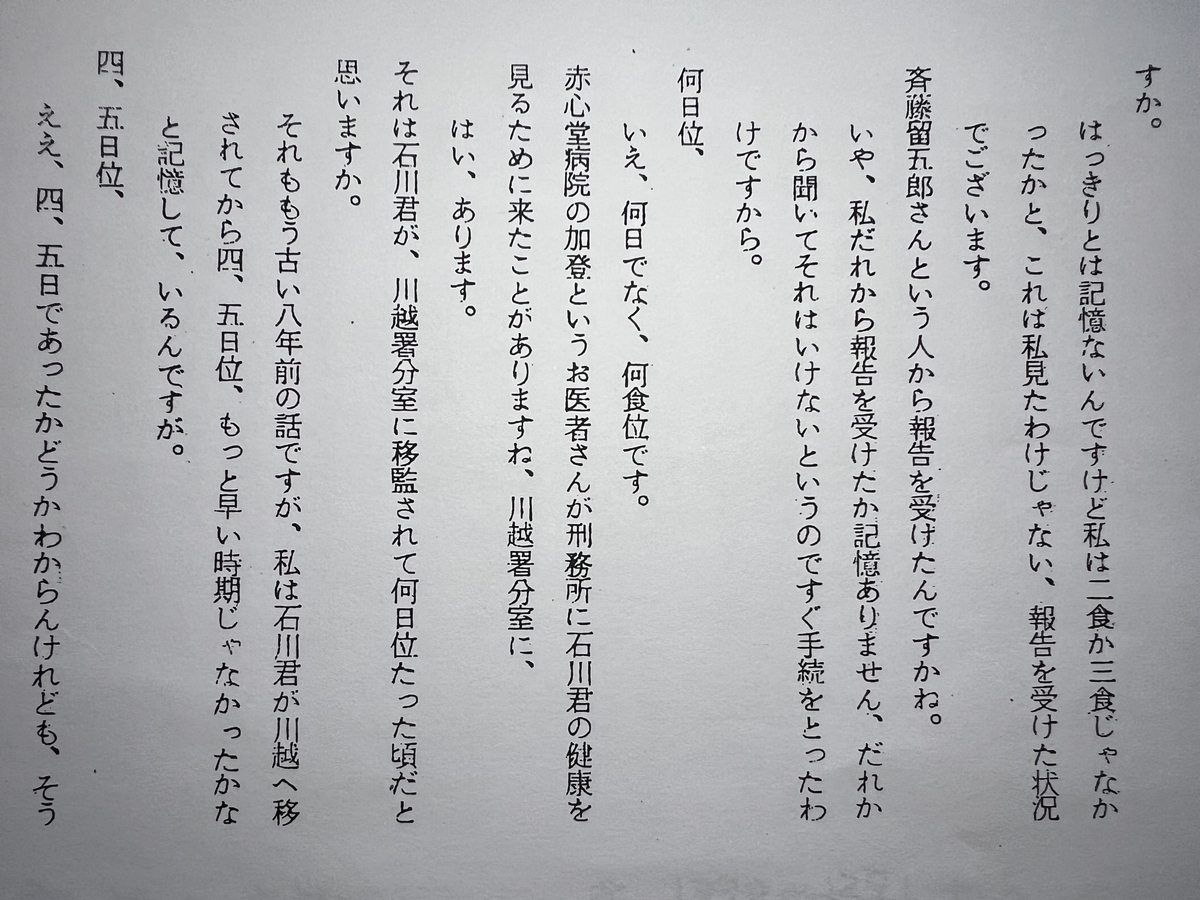 すか。
はっきりとは記憶ないんですけど私は二食か三食じゃなか
ったかと、これは私見たわけじゃない、報告を受けた状況
でございます。
斉藤留五郎さんという人から報告を受けたんですかね。
いや、私だれから報告を受けたか記憶ありません、だれか
から聞いてそれはいけないというのですぐ手続をとったわ
けですから。
何日位、
いえ、何日でなく、何食位です。
赤心堂病院の加登というお医者さんが刑務所に石川君の健康を
見るために来たことがありますね、川越署分室に、
はい、あります。
それは石川君が、川越署分室に移監されて何日位たった頃だと
思いますか。
それももう古い八年前の話ですが、私は石川君が川越へ移
されてから四、五日位、もっと早い時期じゃなかったかな
と記憶して、いるんですが。
四、五日位、
ええ、四、五日であったかどうかわからんけれども、そう